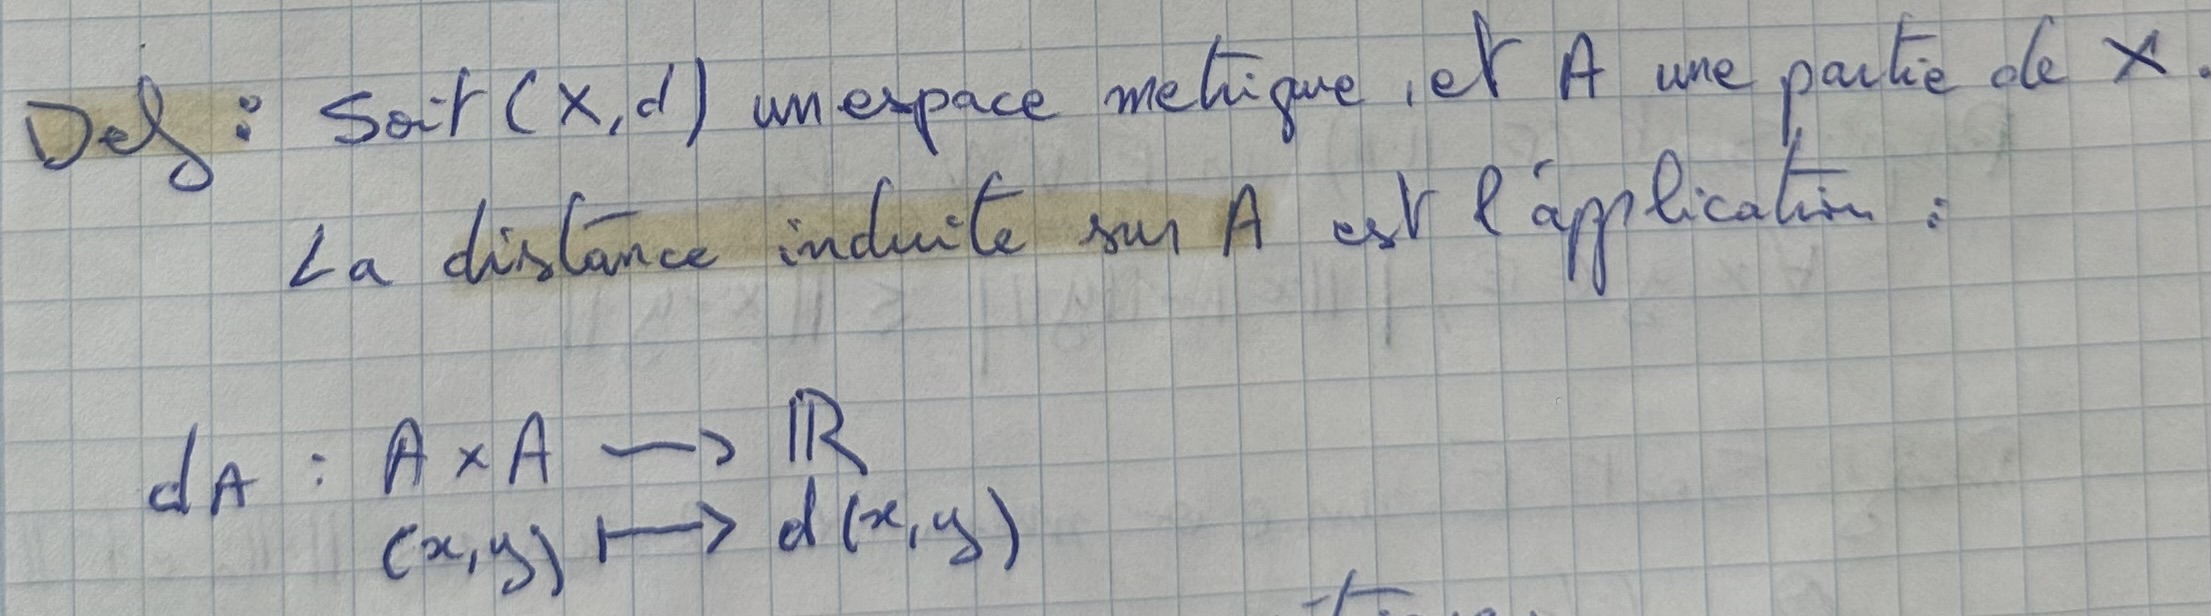 Def : Soit (X,d) un espace metrique, et A une partie de X.
La distance induite sur A est l'application :
dA : A × A → ℝ
(x,y) ↦ d(x,y)